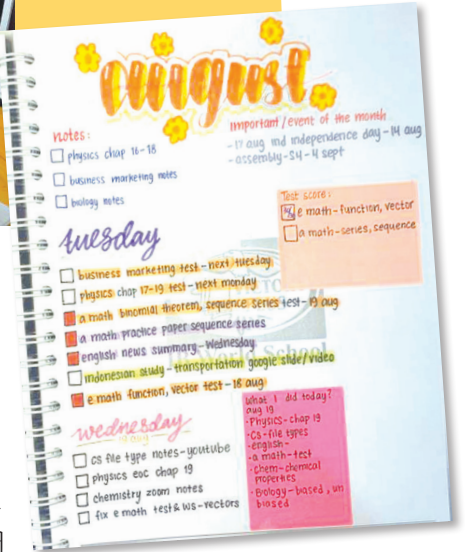 august
notes:
physics chap 16-18
business marketing notes
biology notes
important/event of the month
- 17 aug ind independence day - 14 aug
- assembly - S4 - 4 sept
Test score:
e math - function, vector
a math - series, sequence
tuesday
business marketing test - next tuesday
physics chap 17-19 test - next monday
a math binomial theorem, sequence series test - 19 aug
a math practice paper sequence series
english news summary - Wednesday
indonesian study - transportation google slide/video
e math function, vector test - 18 aug
World School
wednesday
19 aug
CS file type notes - youtube
physics eoc chap 19
chemistry zoom notes
fix e math test & ws - vectors
What I did today?
aug 19
- Physics - chap 19
- CS - file types
- english -
- a math - test
- Chem - chemical
properties
- Biology - biased, un
biased